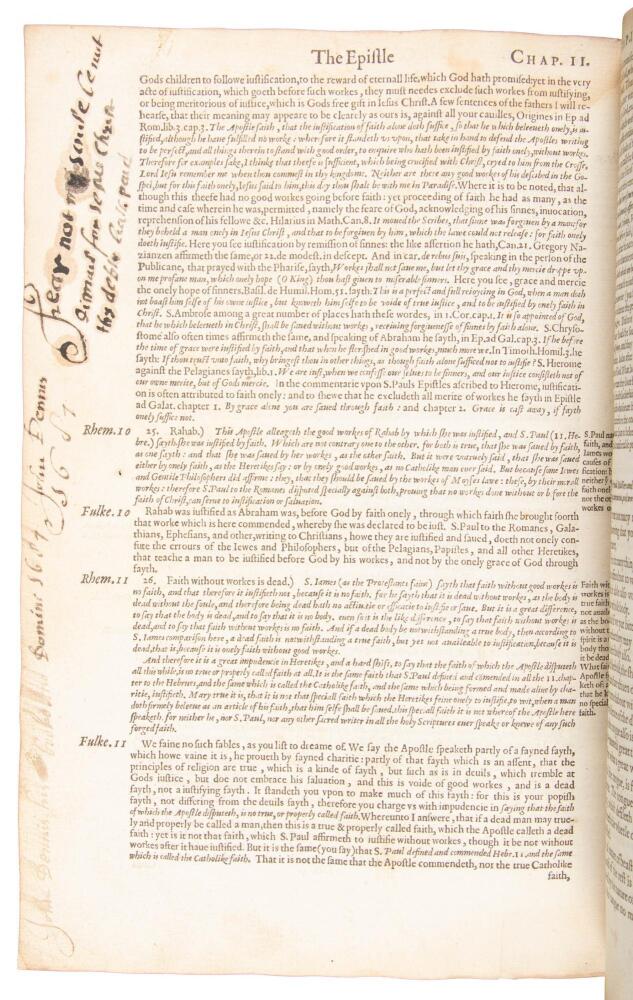 The Epistle CHAP. II.
Gods children to followe iustification, to the reward of eternall life, which God hath promised: yet in the very
acte of iustification, which goeth before such workes, they must needes exclude such workes from iustifying,
or being meritorious of iustice, which is Gods free gift in Iesus Christ. A few sentences of the fathers I will re-
hearse, that their meaning may appeare to be clearely as ours is, against all your cauilles, Origines in Ep ad
Rom. lib. 3. cap. 3. The Apostle saith, that the iustification of faith alone doth suffice, so that he which beleeueth onely, is iu-
stified, although he haue fulfilled no worke: wherefore it standeth vs vpon, that take in hand to defend the Apostles writing
to be perfect, and all things therein to stand with good order, to enquire who hath been iustified by faith onely, without workes.
Therefore for examples sake, I thinke that theefe is sufficient, which being crucified with Christ, cryed to him from the Crosse,
Lord Iesu remember me when thou commest in thy kingdome. Neither are there any good workes of his described in the Go-
spel, but for this faith onely, Iesus said to him, this day thou shalt be with me in Paradise. Where it is to be noted, that al-
though this theefe had no good workes going before faith: yet proceeding of faith he had as many, as the
time and case wherein he was, permitted, namely the feare of God, acknowledging of his sinnes, inuocation,
reprehension of his fellowe &c. Hilarius in Math. Can. 8. It moued the Scribes, that sinne was forgiuen by a man: for
they beheld a man onely in Iesus Christ, and that to be forgiuen by him, which the lawe could not release: for faith onely
doeth iustifie. Here you see iustification by remission of sinnes: the like assertion he hath, Can. 21. Gregory Na-
zianzen affirmeth the same, or 22. de modest. in descept. And in car. de rebus suis, speaking in the person of the
Publicane, that prayed with the Pharise, sayth, Workes shall not saue me, but let thy grace and thy mercie droppe vp-
on me profane man, which onely hope (O King) thou hast giuen to miserable sinners. Here you see, grace and mercie
the onely hope of sinners. Basil. de Humil. Hom. 51. sayth. This is a perfect and full reioycing in God, when a man doth
not boast him selfe of his owne iustice, but knoweth him selfe to be voide of true iustice, and to be iustified by onely faith in
Christ. S. Ambrose among a great number of places hath these wordes, in 1. Cor. cap. 1. It is so appointed of God,
that he which beleeueth in Christ, shall be saued without workes, receiuing forgiuenesse of sinnes by faith alone. S. Chryso-
stome also often times affirmeth the same, and speaking of Abraham he sayth, in Ep. ad Gal. cap. 3. If he before
the time of grace were iustified by faith, and that when he florished in good workes, much more we. In Timoth. Homil. 3. he
sayth: If thou trust vnto faith, why bringest thou in other things, as though faith alone sufficed not to iustifie? S. Hierome
against the Pelagianes sayth, lib. 1. We are iust, when we confesse our selues to be sinners, and our iustice consisteth not of
our owne merite, but of Gods mercie. In the commentarie vpon S. Pauls Epistles ascribed to Hierome, iustificati-
on is often attributed to faith onely: and to shewe that he excludeth all merite of workes he sayth in Epistle
ad Galat. chapter 1. By grace alone you are saued through faith: and chapter 2. Grace is cast away, if fayth
onely suffice not.
Rhem. 10 25. Rahab.) This Apostle alleageth the good workes of Rahab by which she was iustified, and S. Paul (11. He-
bre.) sayth she was iustified by faith. Which are not contrary one to the other. for both is true, that she was saued by faith,
as one sayth: and that she was saued by her workes, as the other saith. But it were vntruely said, that she was saued
either by onely faith, as the Heretikes say: or by onely good workes, as no Catholike man euer said. But because some Iewes
and Gentile Philosophers did affirme: they, that they should be saued by the workes of Moyses lawe: these, by their morall
workes: therefore S. Paul to the Romanes disputed specially against both, prouing that no workes done without or before the
faith of Christ, can serue to iustification or saluation.
Fulke. 10 Rahab was iustified as Abraham was, before God by faith onely, through which faith she brought foorth
that worke which is here commended, whereby she was declared to be iust. S. Paul to the Romanes, Gala-
thians, Ephesians, and other, writing to Christians, howe they are iustified and saued, doeth not onely con-
fute the errours of the Iewes and Philosophers, but of the Pelagians, Papistes, and all other Heretikes,
that teache a man to be iustified before God by his workes, and not by the onely grace of God through
fayth.
Rhem. 11 26. Faith without workes is dead.) S. Iames (as the Protestants faine) sayth that faith without good workes is
no faith, and that therefore it iustifieth not, because it is no faith. for he sayth that it is dead without workes, as the body is
dead without the soule, and therefore being dead hath no actiuitie or efficacie to iustifie or saue. But it is a great difference
to say that the body is dead, and to say that it is no body. euen so it is the like difference, to say that faith without workes is
dead, and to say that faith without workes is no faith. And if a dead body be notwithstanding a true body, then according to
S. Iames comparison here, a dead faith is notwithstanding a true faith, but yet not auaileable to iustification, because it is
dead, that is, because it is onely faith without good workes.
And therefore it is a great impudencie in Heretikes, and a hard shift, to say that the faith of which the Apostle disputeth
all this while, is no true or properly called faith at all. It is the same faith that S. Paul defined and commended in all the 11. chap-
ter to the Hebrues, and the same which is called the Catholike faith, and the same which being formed and made aliue by cha-
ritie, iustifieth. Mary true it is, that it is not that speciall faith which the Heretikes feine onely to iustifie, to wit, when a man
doth firmely beleeue as an article of his faith, that him selfe shall be saued. this speciall faith it is not whereof the Apostle here
speaketh. for neither he, nor S. Paul, nor any other sacred writer in all the holy Scriptures euer speake or knewe of any such
forged faith.
Fulke. 11 We faine no such fables, as you list to dreame of. We say the Apostle speaketh partly of a fayned fayth,
which howe vaine it is, he proueth by fayned charitie: partly of that fayth which is an assent, that the
principles of religion are true, which is a kinde of fayth, but such as is in deuils, which tremble at
Gods iustice, but doe not embrace his saluation, and this is voide of good workes, and is a dead
fayth, not a iustifying fayth. It standeth you vpon to make much of this fayth: for this is your popish
fayth, not differing from the deuils fayth, therefore you charge vs with impudencie in saying that the faith
of which the Apostle disputeth, is no true, or properly called faith. Whereunto I answere, that if a dead man may true-
ly and properly be called a man, then this is a true & properly called faith, which the Apostle calleth a dead
faith: yet is it not that faith, which S. Paul affirmeth to iustifie without workes, though it be not without
workes after it haue iustified. But it is the same (you say) that S. Paul defined and commended Hebr. 11. and the same
which is called the Catholike faith. That it is not the same that the Apostle commendeth, nor the true Catholike
faith,
S. Paul
faith, and
Iames
neither
faith onely
nor the
workes
Faith
workes is
true faith
as the
without
spirit is a
body
it be dead
Apostle
that he
no special
faith.
Fear not
John Pennus
1687
Domini 1687